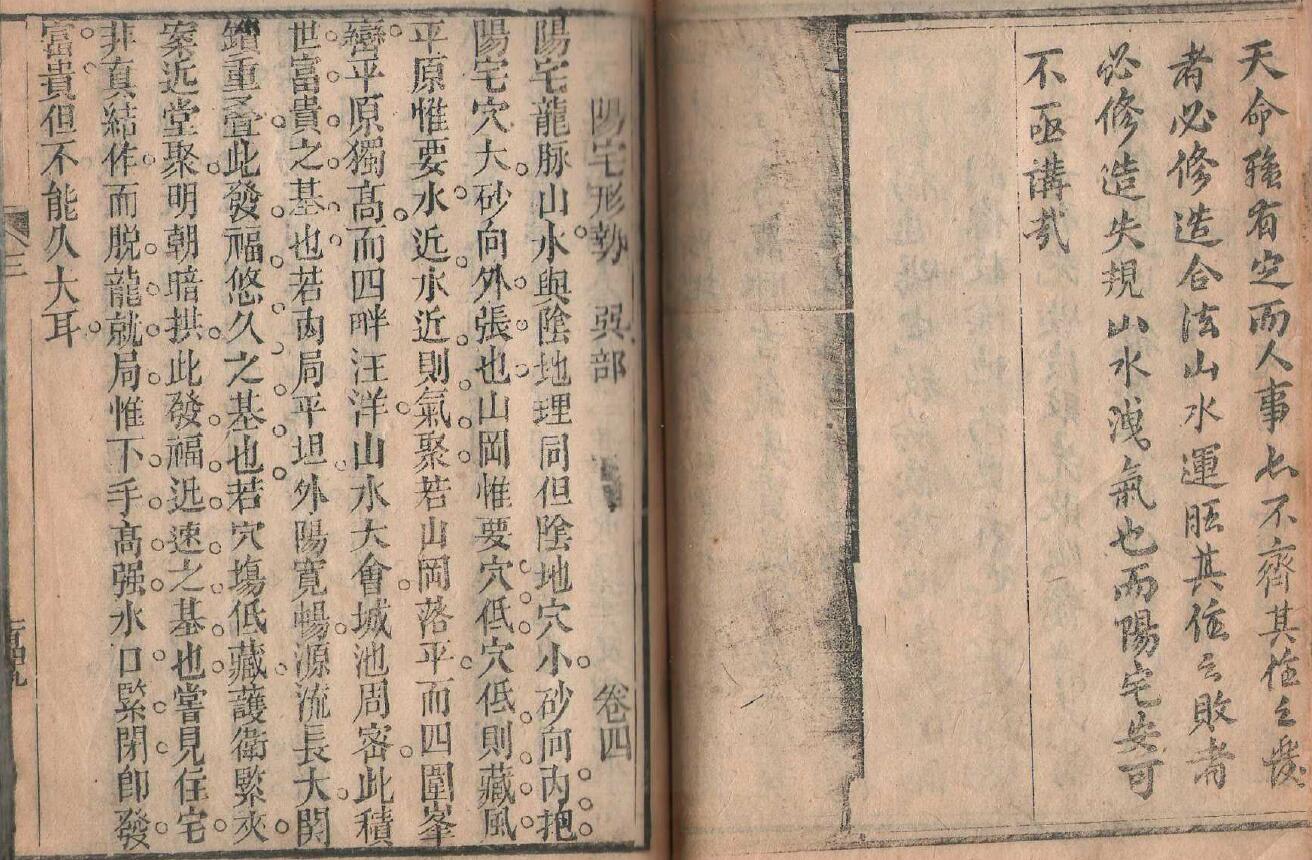 天命雖有定而人事亦不齊其徃之發
者必修造合法山水運旺其徃之敗者
必修造失規山水洩氣也而陽宅安可
不亟講哉
陽宅形勢　巽部　卷四
陽宅龍脉山水與陰地理同但陰地穴小砂向內抱
陽宅穴大砂向外張也山岡惟要穴低穴低則藏風
平原惟要水近水近則氣聚若山岡落平而四圍峯
巒平原獨高而四畔汪洋山水大會城池周密此積
世富貴之基也若內局平坦外陽寬暢源流長大関
鎖重疊此發福悠久之基也若穴塲低藏護衛緊夾
案近堂聚明朝暗拱此發福迅速之基也嘗見住宅
非真結作而脱龍就局惟下手高强水口緊閉卽發
富貴但不能久大耳
三